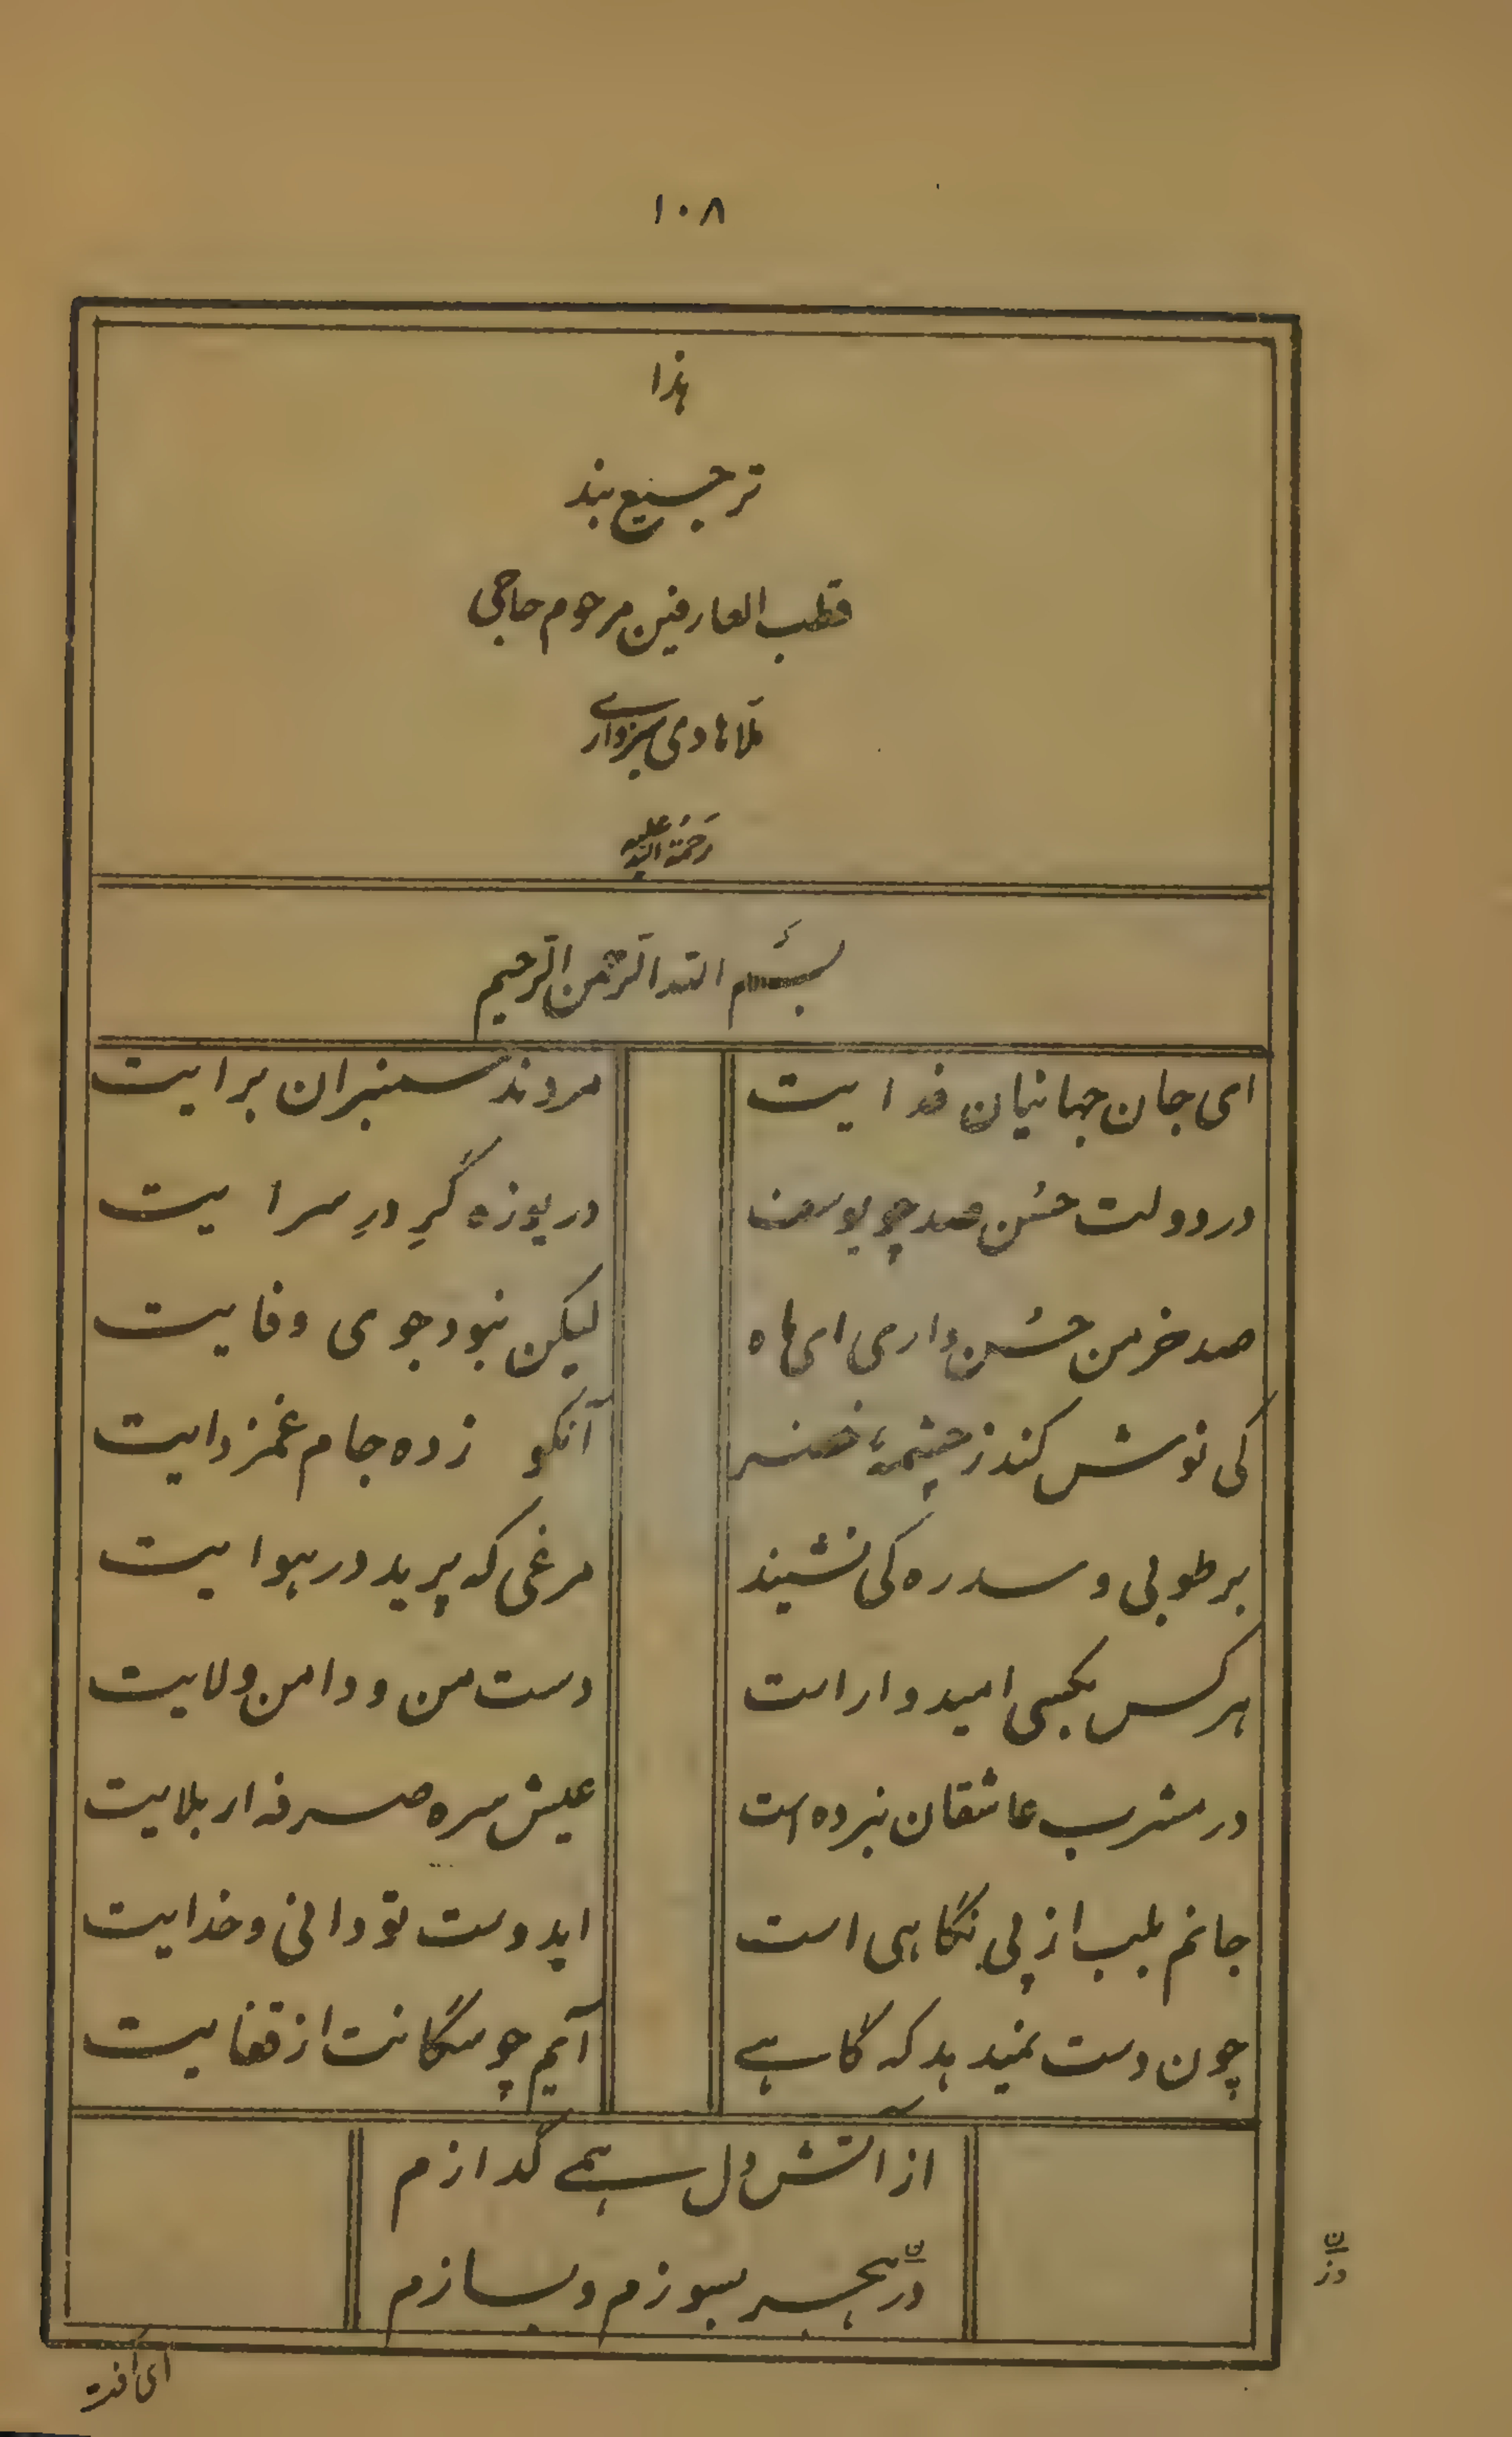 ۱۰۸
هذا
ترجیع بند
قطب العارفین مرحوم حاجی
ملا هادی سبزواری
رحمة الله علیه
بسم الله الرحمن الرحیم
ای جان جهانیان فدایت مردند سمنبران برایت
در دولت حُسن صد چو یوسف دریوزه گرِ درِ سرایت
صد خرمن حُسن داری ای ماه لیکن نبود جوی وفایت
کی نوش کند ز چشمهٔ خضر آنکو زده جام غمزدایت
بر طوبی و سدره کی نشیند مرغی که پرید در هوایت
هر کس بکسی امیدوار است دست من و دامن ولایت
در مشرب عاشقان نبرده است عیش سره صرفه از بلایت
جانم بلب از پی نگاهی است ایدوست تو دانی و خدایت
چون دست نمیدهد که گاهی آیم چو سگانت از قفایت
از آتش دل همی گدازم
در هجر بسوزم و بسازم
ن
وز
ای آفت